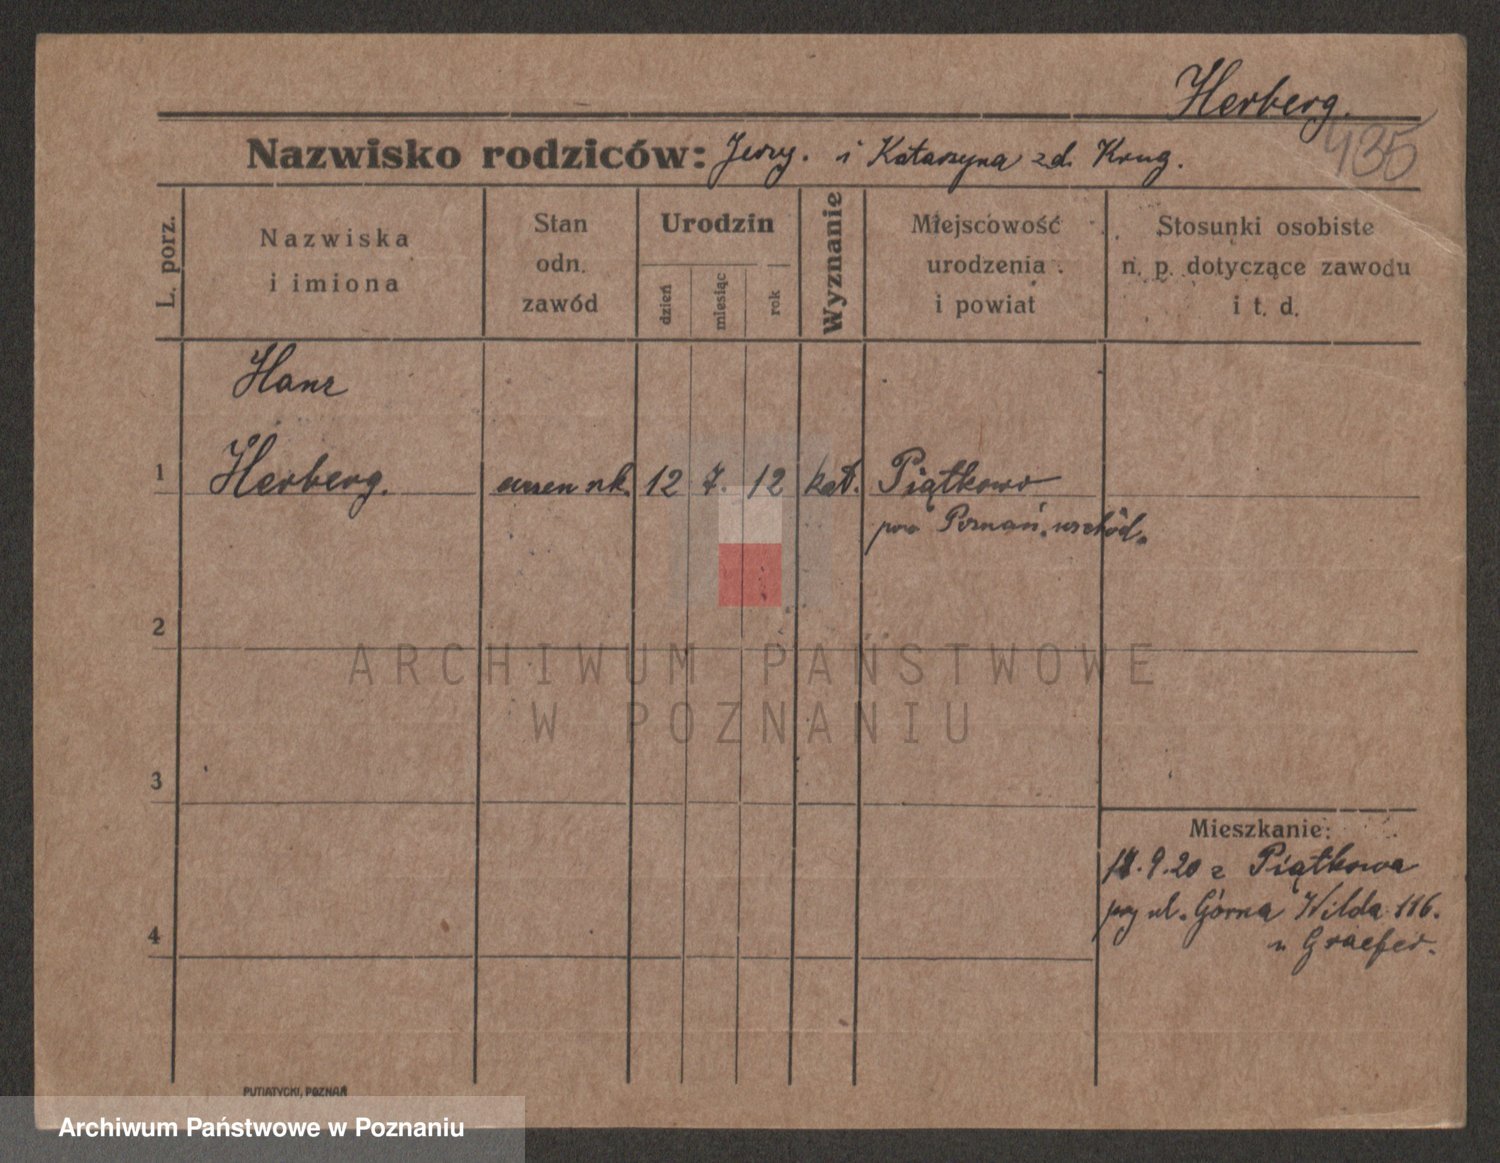 Herberg.
435
Nazwisko rodziców: Jerzy. i Katarzyna zd. Krug.
L. porz.
Nazwiska
i imiona
Stan
odn.
zawód
Urodzin
dzień
miesiąc
rok
Wyznanie
Miejscowość
urodzenia
i powiat
Stosunki osobiste
n. p. dotyczące zawodu
i t. d.
Hanz
1 Herberg. 12 7. 12 kat. Piątkowo
pow Poznań. wschód.
2
ARCHIWUM PAŃSTWOWE
W POZNANIU
3
Mieszkanie:
9.20 z Piątkowa
przy ul. Górna Wilda 116.
4
u Graefer.
PUTIATYCKI, POZNAŃ
Archiwum Państwowe w Poznaniu